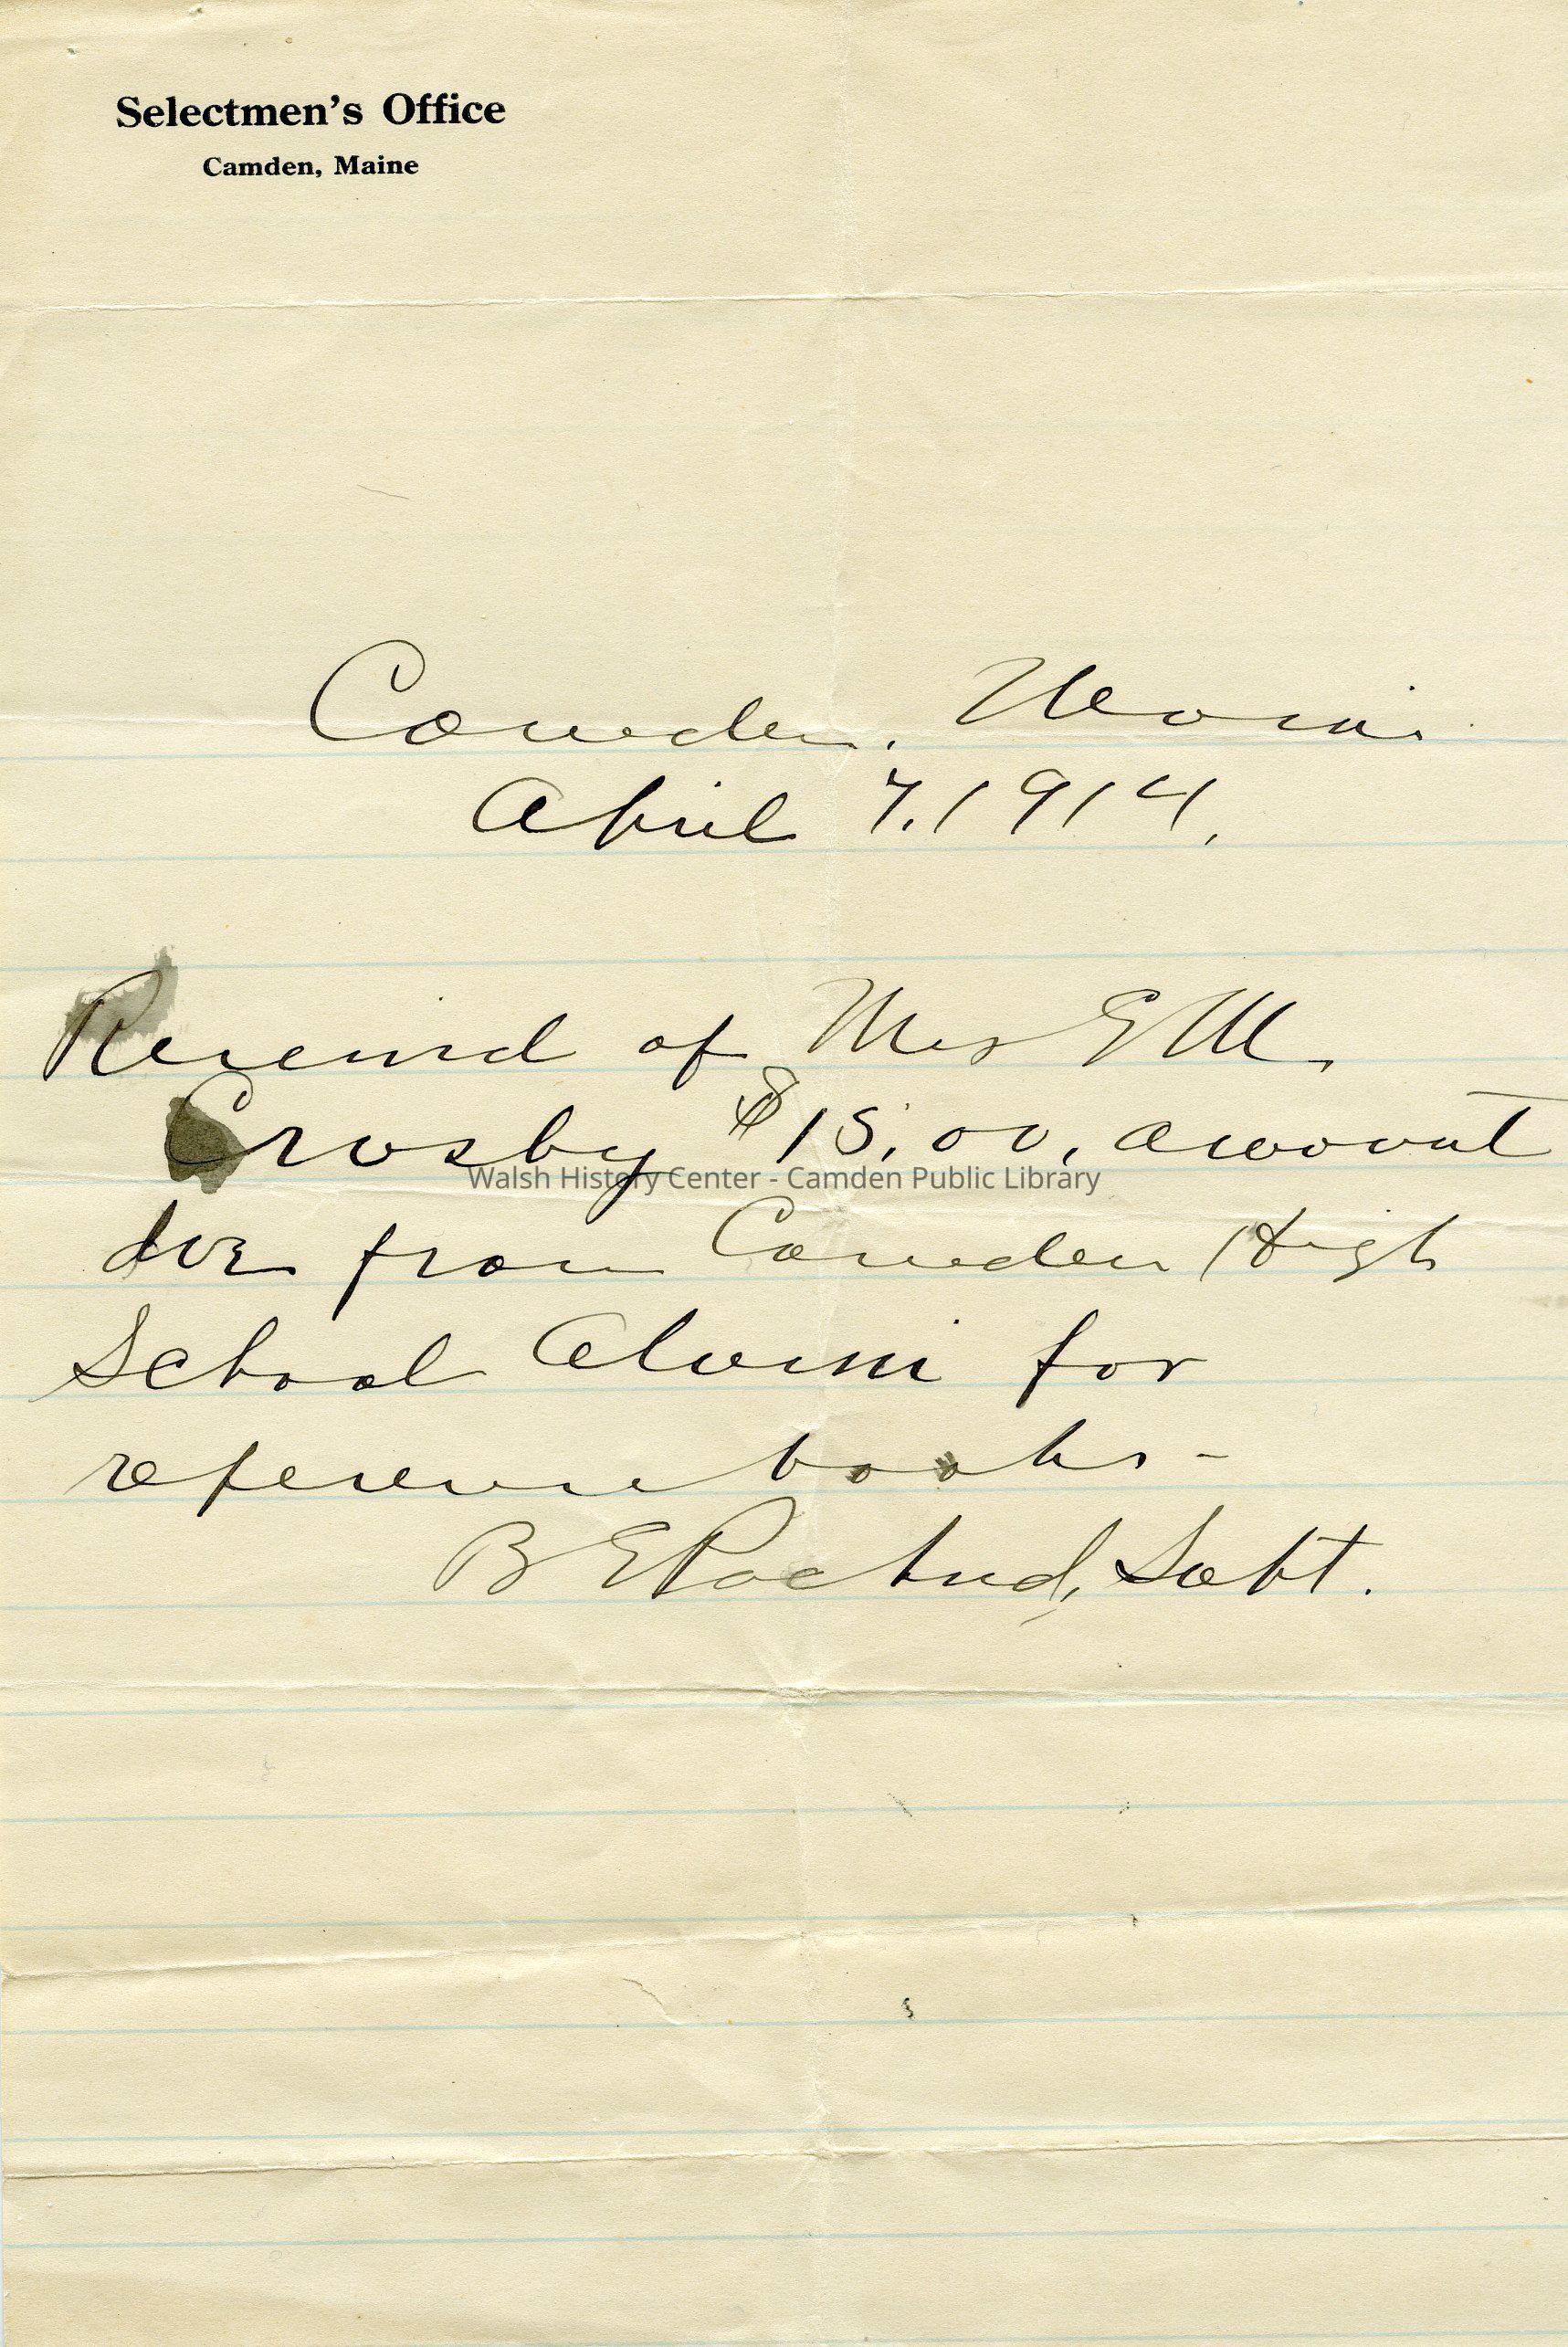 Selectmen's Office
Camden, Maine
Camden, Maine
April 7, 1914.
Received of Mrs E M.
Crosby $15.00, amount
Walsh History Center - Camden Public Library
due from Camden High
School Alumni for
reference books -
B E Packard, Supt.